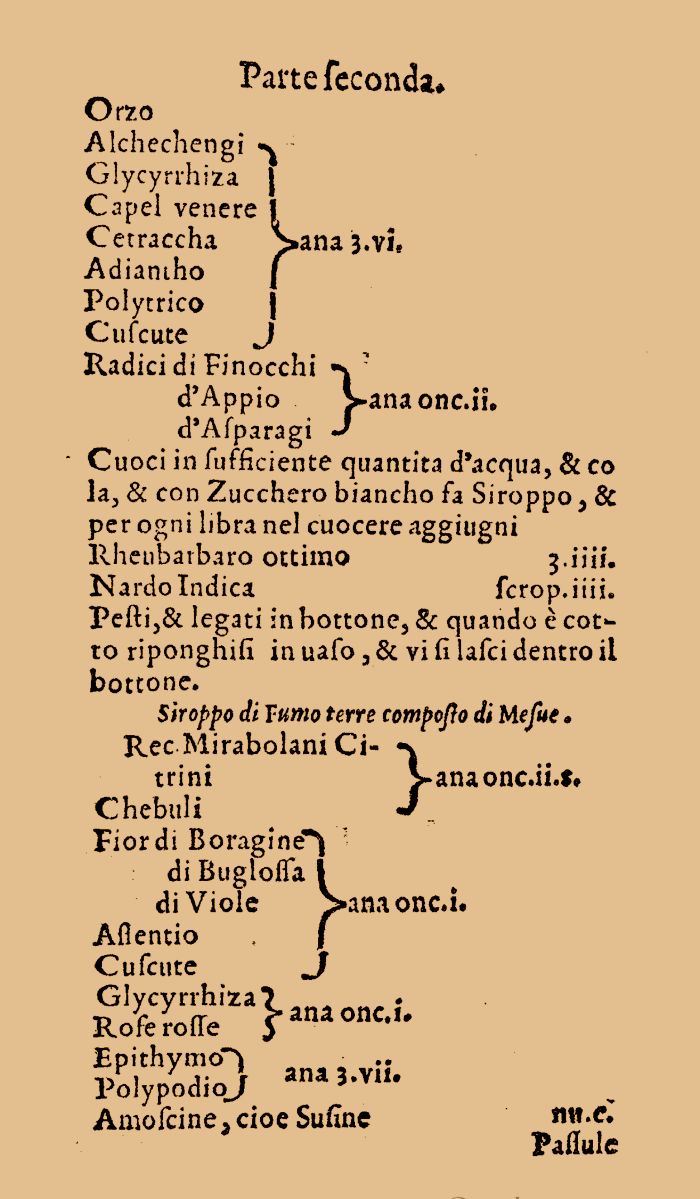 Parte ſeconda.
Orzo
Alchechengi
Glycyrrhiza
Capel venere
Cetraccha
Adiantho
Polytrico
Cuſcute
ana ʒ.vi.
Radici di Finocchi
d'Appio
d'Aſparagi
ana onc.ii.
Cuoci in ſufficiente quantita d'acqua, & co
la, & con Zucchero biancho fa Siroppo, &
per ogni libra nel cuocere aggiugni
Rheubarbaro ottimo ʒ.iiii.
Nardo Indica ſcrop.iiii.
Peſti,& legati in bottone, & quando è cot-
to riponghiſi in uaſo, & vi ſi laſci dentro il
bottone.
Siroppo di Fumo terre compoſto di Meſue.
Rec. Mirabolani Ci-
trini
Chebuli
ana onc.ii.s.
Fior di Boragine
di Bugloſſa
di Viole
Aſſentio
Cuſcute
ana onc.i.
Glycyrrhiza
Roſe roſſe
ana onc.i.
Epithymo
Polypodio
ana ʒ.vii.
Amoſcine, cioe Suſine nu.c.
Paſſule